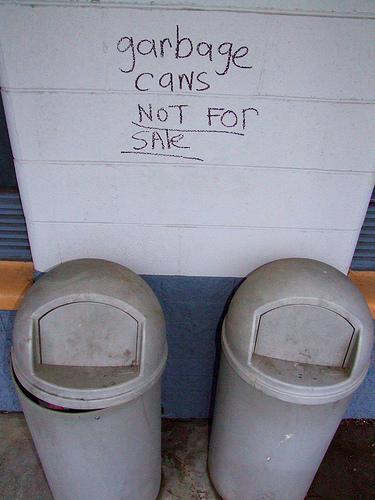 garbage
cans
NOT FOr
SAle